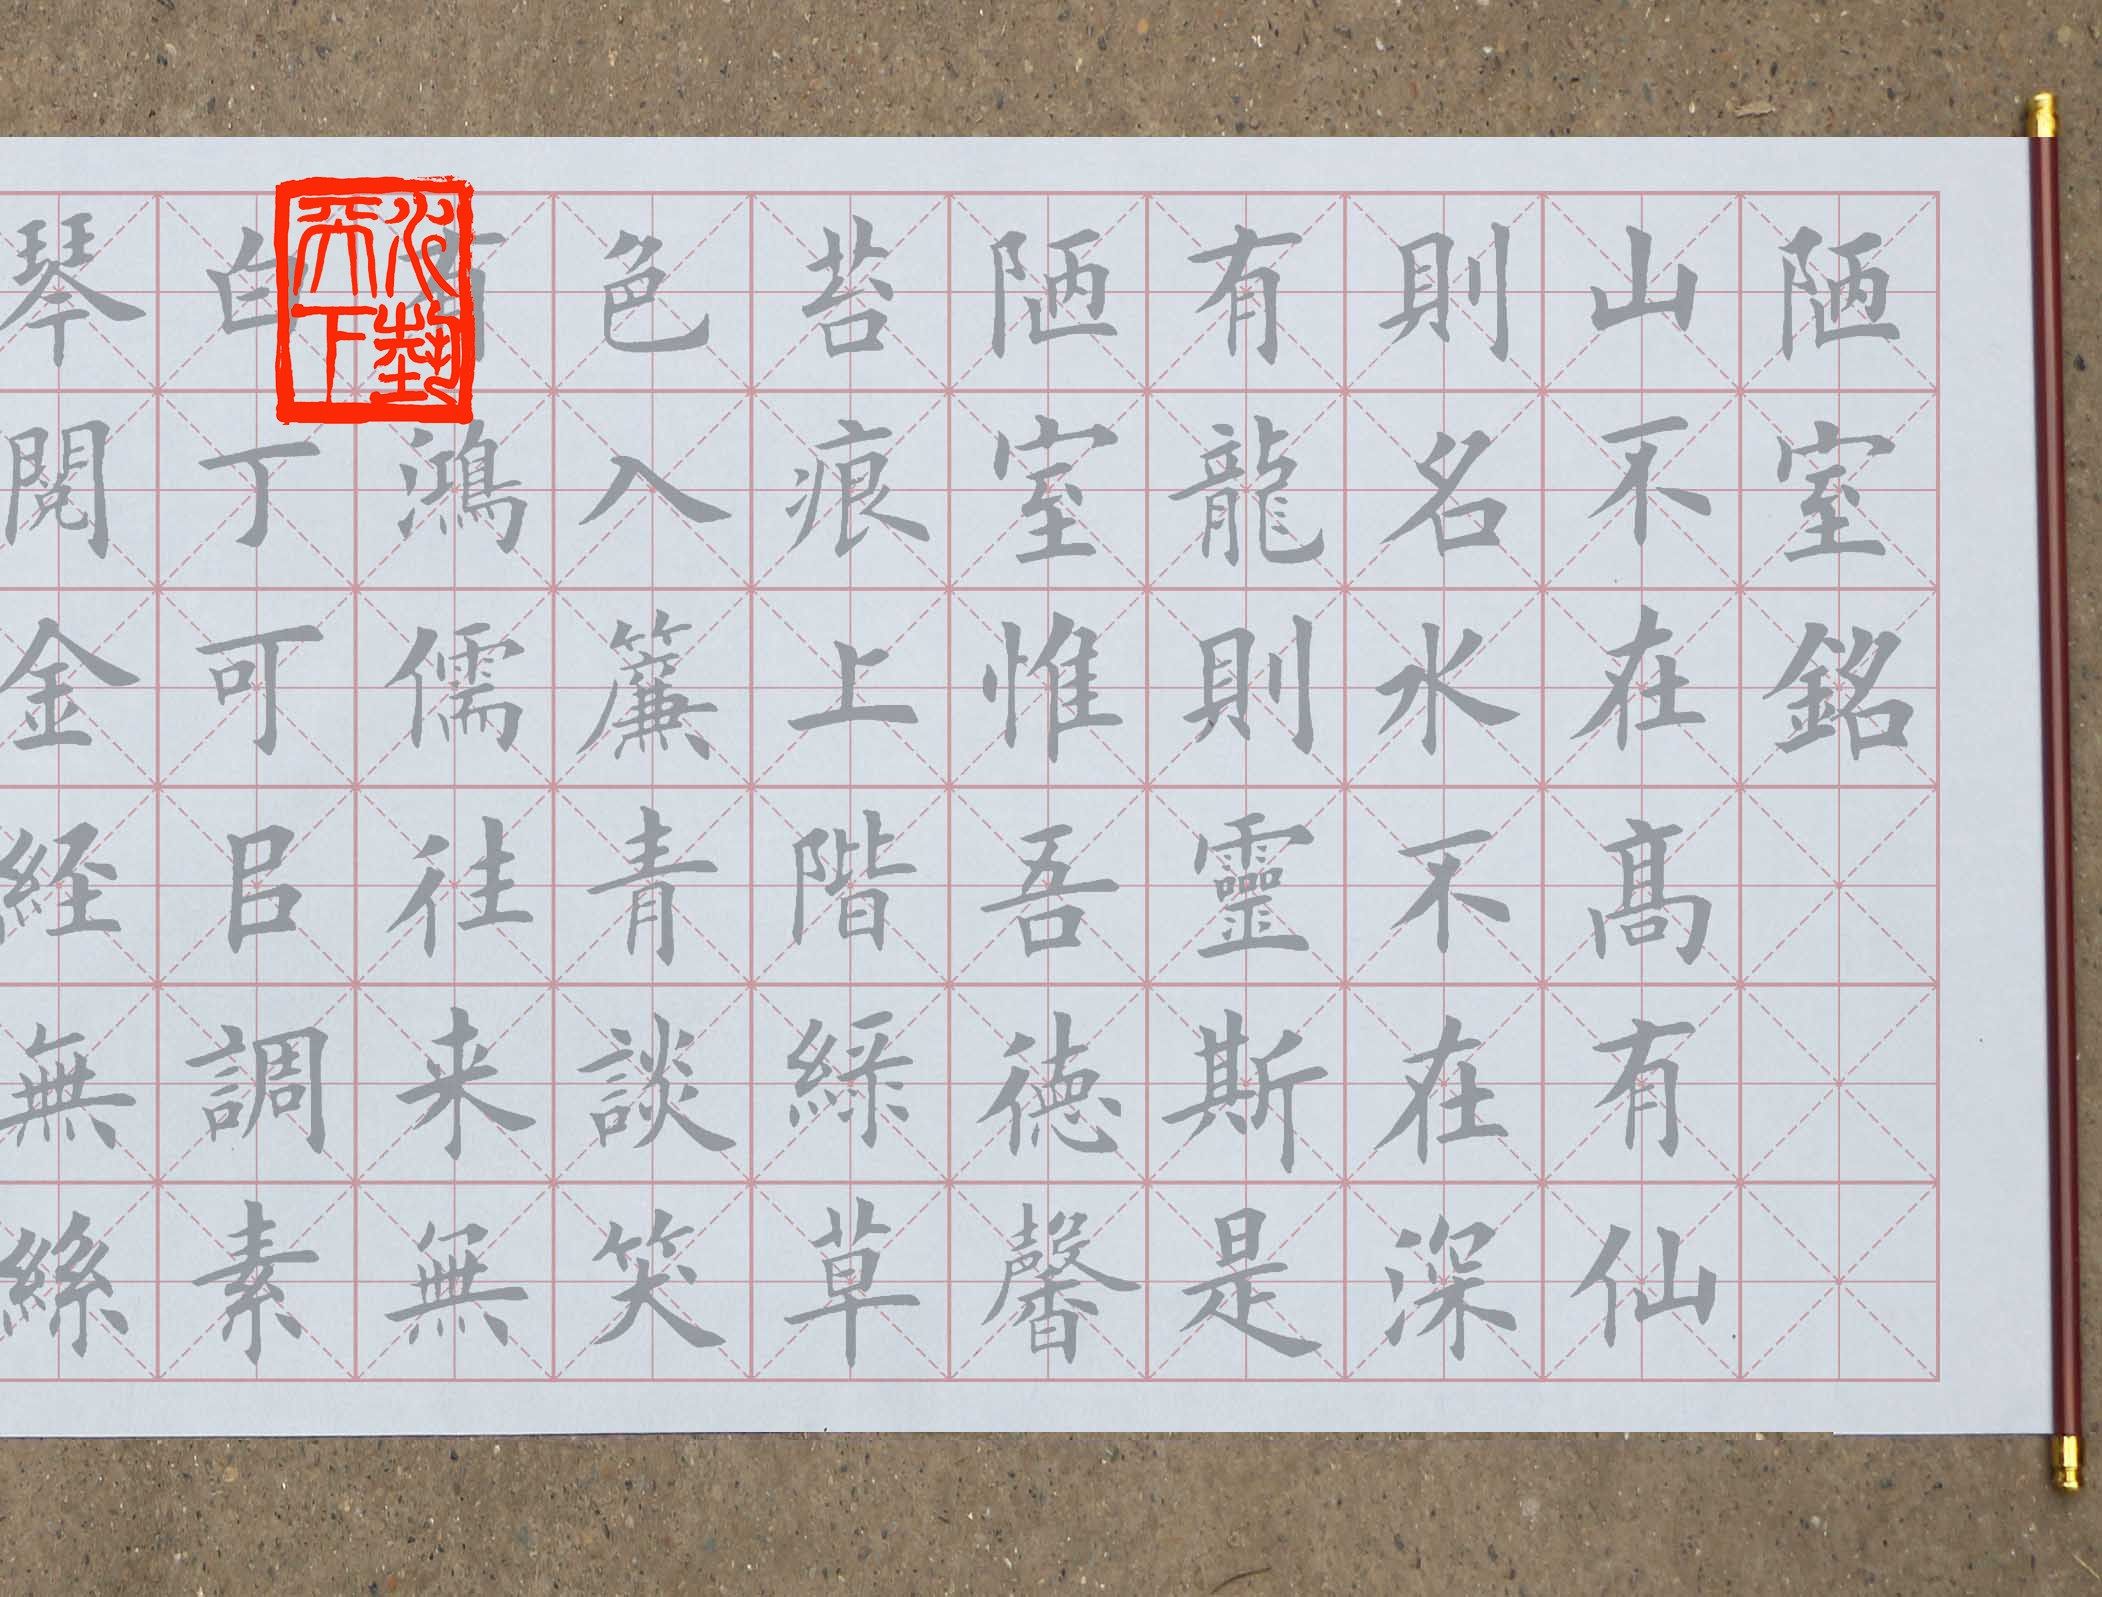 陋室銘
山不在髙有仙
則名水不在深
有龍則靈斯是
陋室惟吾德馨
苔痕上階緑草
色入簾青談笑
有鴻儒往来無
白丁可㠯調素
琴閱金経無絲
天下